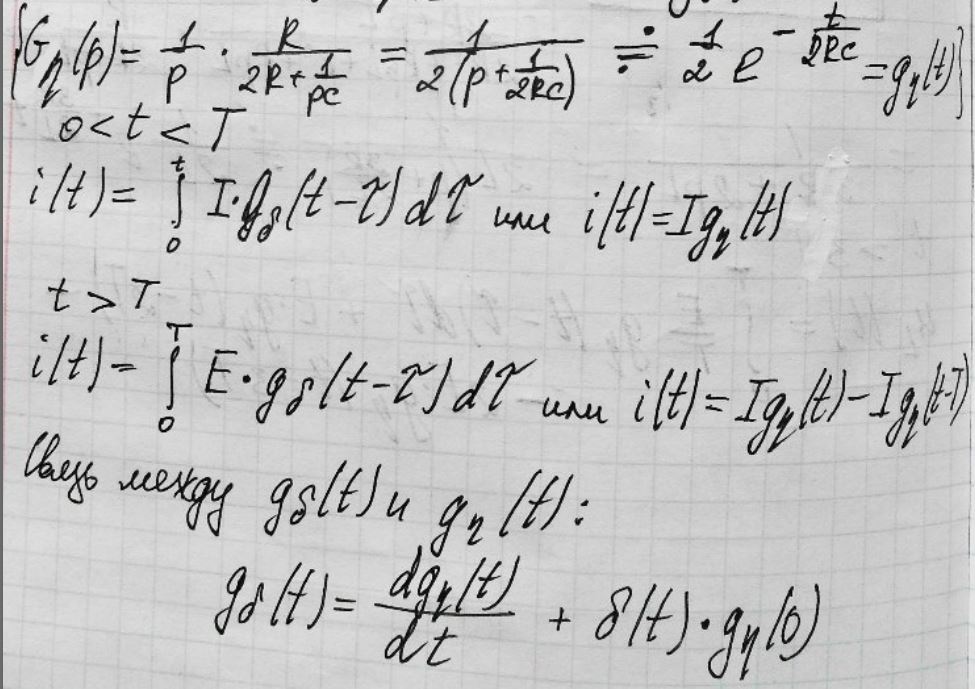 {G_η(p) = 1/p · R/(2R + 1/pC) = 1/(2(p + 1/2RC)) ≓ 1/2 e^(-t/2RC) = g_η(t)}
0 < t < T
i(t) = ∫₀ᵗ I·g_δ(t-τ)dτ или i(t) = Ig_η(t)
t > T
i(t) = ∫₀ᵀ E·g_δ(t-τ)dτ или i(t) = Ig_η(t) - Ig_η(t-T)
Связь между g_δ(t) и g_η(t):
g_δ(t) = dg_η(t)/dt + δ(t)·g_η(0)